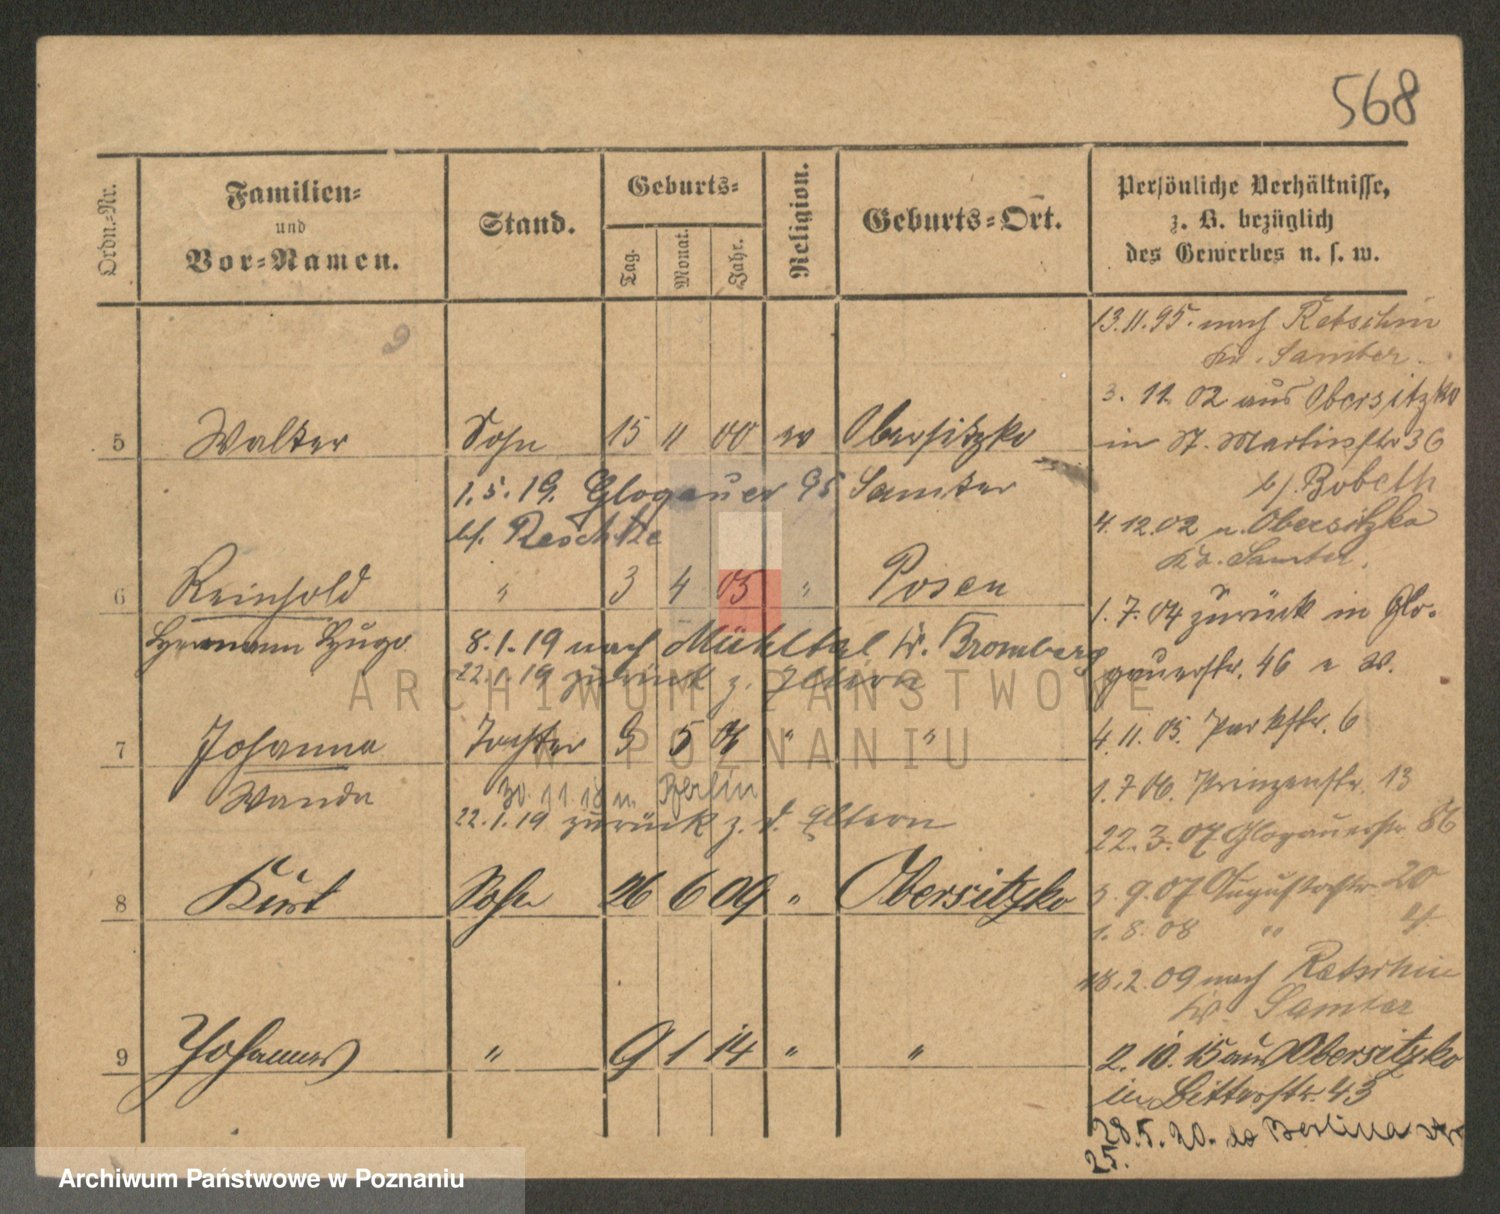 568
Ordn.-Nr.
Familien-
und
Vor-Namen.
Stand.
Geburts-
Tag.
Monat.
Jahr.
Religion.
Geburts-Ort.
Persönliche Verhältnisse,
z. B. bezüglich
des Gewerbes u. s. w.
9
5 Walter Sohn 15 11 00 ev Obersitzko
1.5.19. Glogauer 95 Samter
bj. Reschke
6 Reinhold " 3 4 05 " Posen
Hermann Hugo 8.1.19 nach Mühltal Kr. Bromberg
22.1.19 zurück z. Eltern
7 Johanna Tochter 9 5 " "
Wanda 30.11.18 n. Berlin
22.1.19 zurück z. d. Eltern
8 Kurt Sohn 26 6 09 " Obersitzko
9 Johannes " 9 1 14 " "
13.11.95. nach Retschin
Kr. Samter
3. 11. 02 aus Obersitzko
in St. Martinstr 36
bj. Bobeth
4. 12. 02 n. Obersitzko
Kr. Samter.
1. 7. 04 zurück in Glo-
gauerstr. 46
4. 11. 05. Parkstr. 6
1. 7 06. Prinzenstr. 13
22. 3. 07 Glogauerstr 86
3. 9. 07 Augustastr 20
1. 8. 08 " 4
18. 2. 09 nach Retschin
Kr. Samter
2. 10. 15 aus Obersitzko
in Bitterstr. 43
28. 5. 20. do Berlina
25.
ARCHIWUM PAŃSTWOWE
W POZNANIU
Archiwum Państwowe w Poznaniu